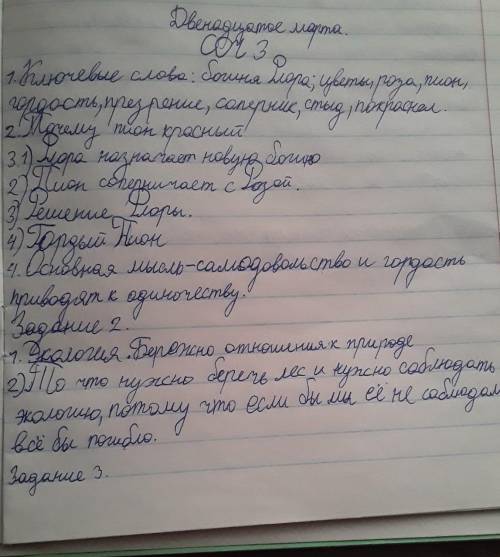 Двенадцатое марта.
СОЧ 3
1. Ключевые слова: богиня Флора; цветы, роза, пион,
гордость, презрение, соперник, стыд, покраснел.
2. Почему пион красный
3. 1) Флора назначает новую богиню
2) Пион соперничает с Розой.
3) Решение Флоры.
4) Гордый Пион
4. Основная мысль-самодовольство и гордость
приводят к одиночеству.
Задание 2.
1. Экология. Бережно отношения к природе
2) То что нужно беречь лес и нужно соблюдать
экологию, потому что если бы мы её не соблюдал
всё бы погибло.
Задание 3.